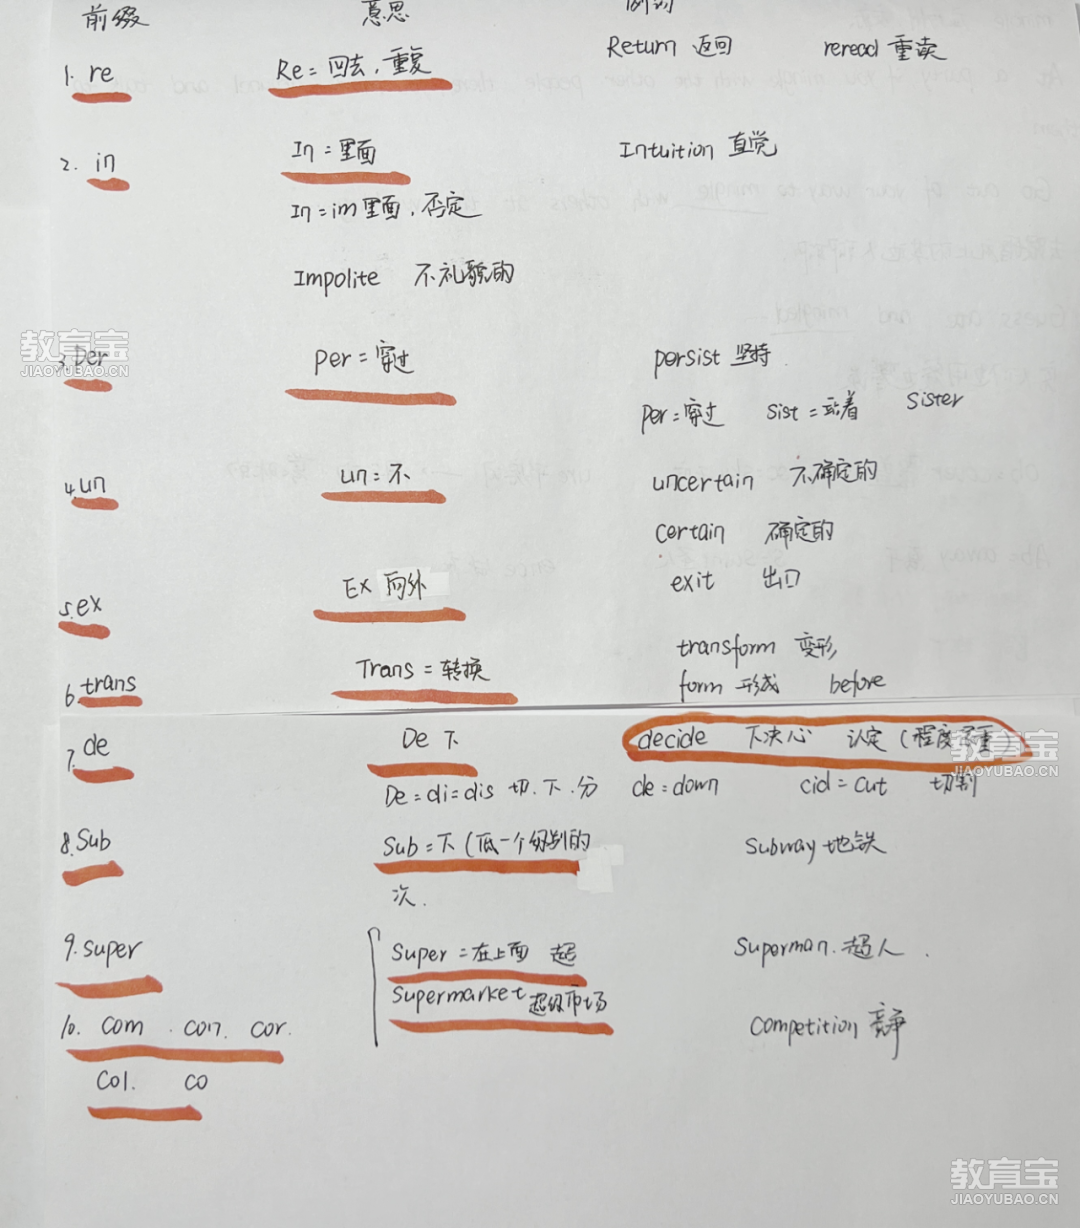 前缀 意思 例词
1. re Re = 回去，重复 Return 返回 reread 重读
2. in In = 里面 Intuition 直觉
In = im 里面，否定
Impolite 不礼貌的
3. Per per = 穿过 persist 坚持
per = 穿过 sist = 站着 sister
4. un un = 不 uncertain 不确定的
certain 确定的
5. ex Ex 向外 exit 出口
transform 变形
6. trans Trans = 转换 form 形成 before
7. de De 下 decide 下决心 认定（程度
De = di = dis 切．下．分 de = down cid = cut 切割
8. Sub Sub = 下（低一个级别的 Subway 地铁
次．
9. super Super = 在上面 超 Superman．超人．
Supermarket 超级市场
10. com．con．cor． Competition 竞争
Col． co
教育宝
JIAOYUBAO.CN
教育宝
JIAOYUBAO.CN
教育宝
JIAOYUBAO.CN